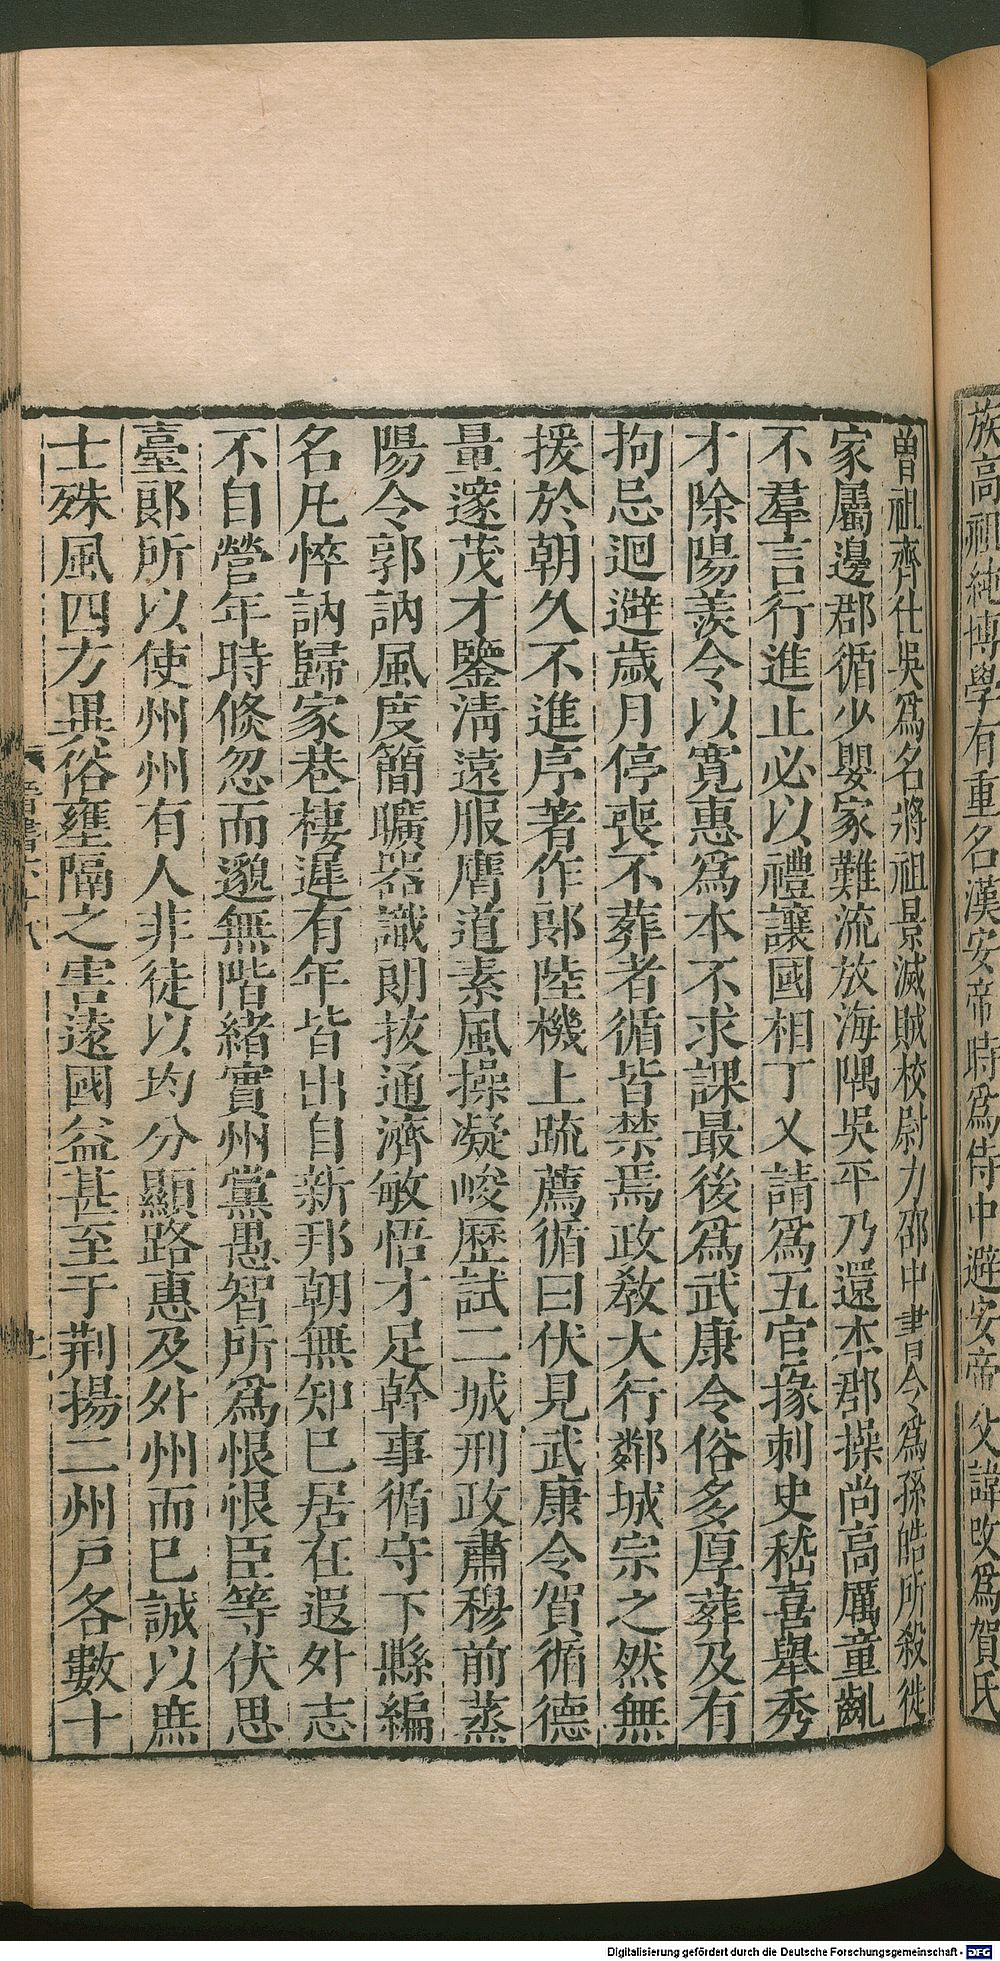 族高祖純博學有重名漢安帝時爲侍中避安帝父諱改爲賀氏
曾祖齊仕吳爲名將祖景滅賊校尉力邵中書令爲孫皓所殺徙
家屬邊郡循少嬰家難流放海隅吳平乃還本郡操尚高厲童齓
不羣言行進止必以禮讓國相丁乂請爲五官掾刺史嵇喜舉秀
才除陽羨令以寬惠爲本不求課最後爲武康令俗多厚葬及有
拘忌迴避歲月停喪不葬者循皆禁焉政教大行鄰城宗之然無
援於朝久不進序著作郎陸機上疏薦循曰伏見武康令賀循德
量邃茂才鑒清遠服膺道素風操凝峻歷試二城刑政肅穆前蒸
陽令郭訥風度簡曠器識朗拔通濟敏悟才足幹事循守下縣編
名凡悴訥歸家巷棲遲有年皆出自新邦朝無知已居在遐外志
不自營年時倐忽而邈無階緒實州黨愚智所爲恨恨臣等伏思
臺郎所以使州州有人非徒以均分顯路惠及外州而已誠以庶
士殊風四方異俗壅隔之害遠國益甚至于荆揚二州戸各數十
Digitalisierung gefördert durch die Deutsche Forschungsgemeinschaft - DFG